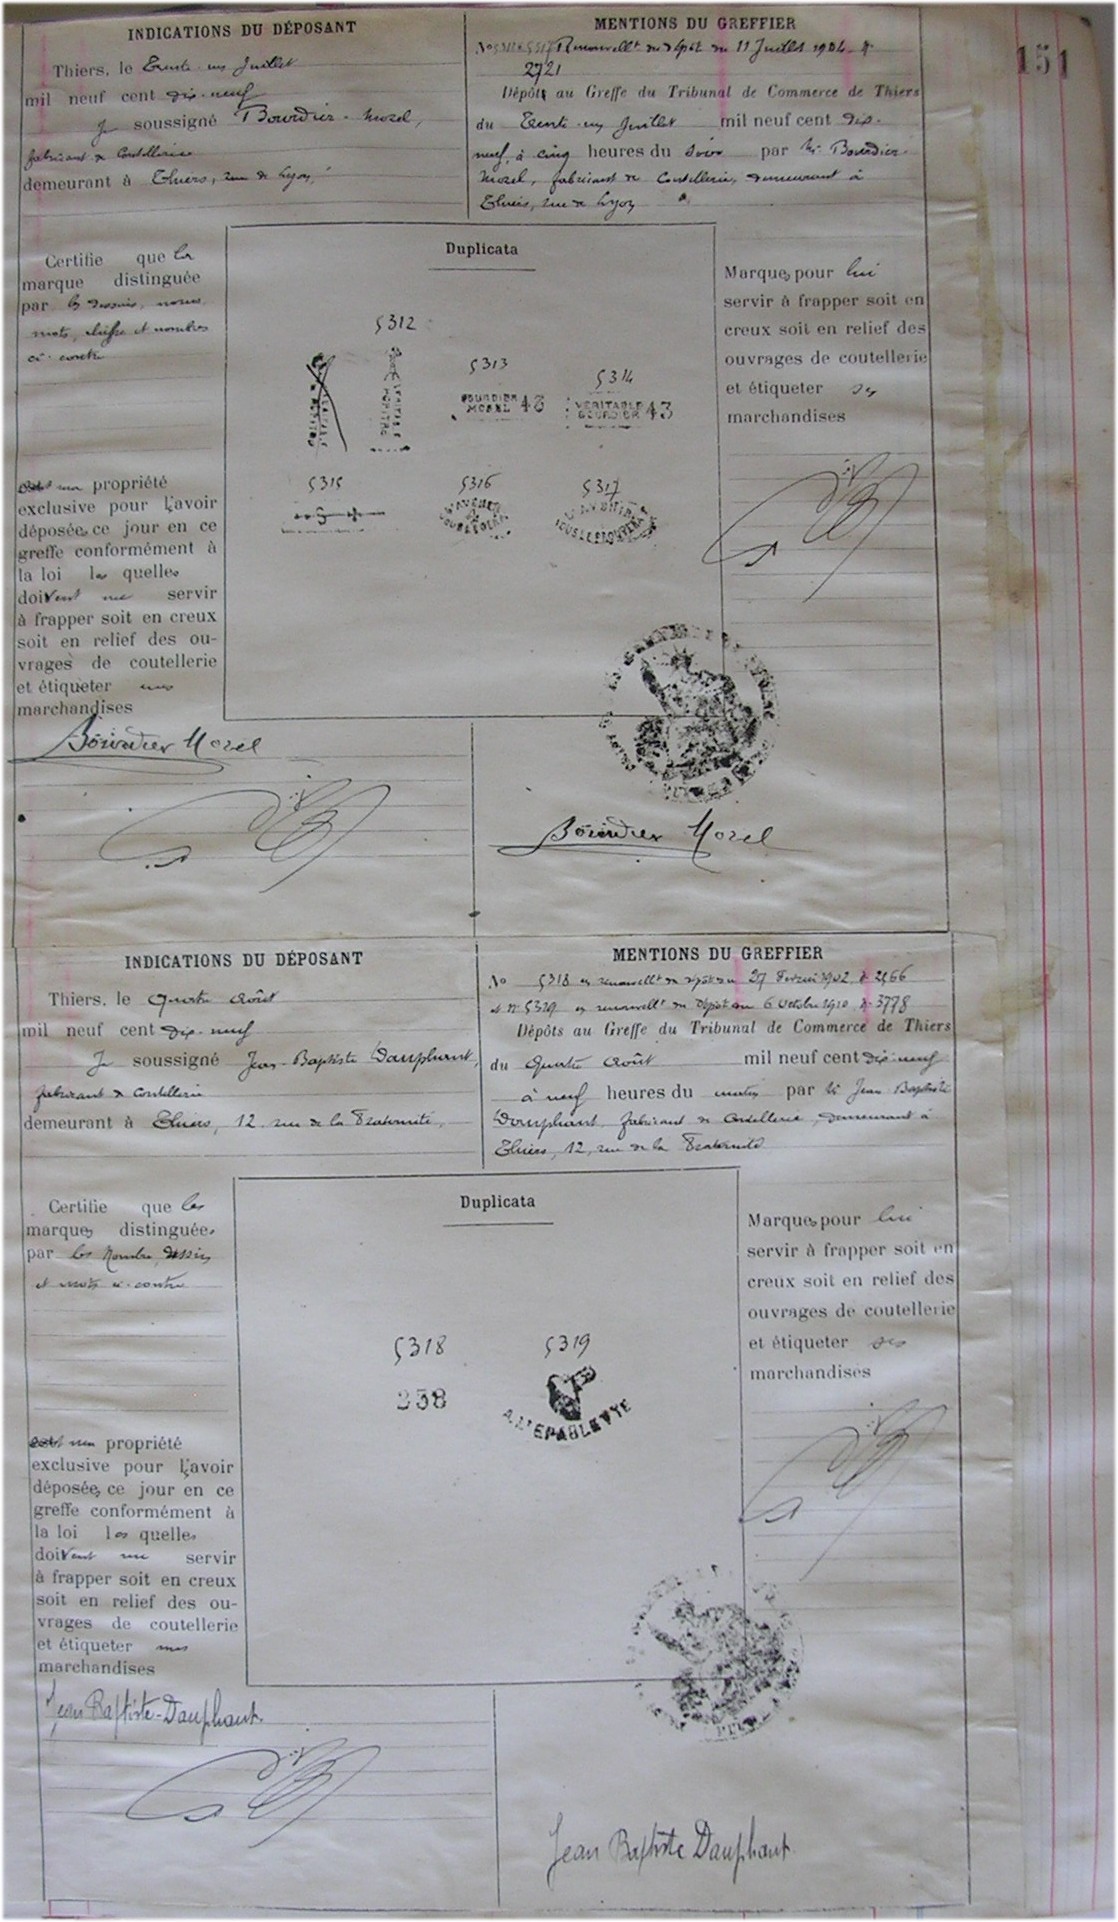 151
INDICATIONS DU DÉPOSANT
Thiers, le Trente-un Juillet
mil neuf cent dix-neuf
Je soussigné Bourdier-Morel,
fabricant de Coutellerie
demeurant à Thiers, rue de Lyon,
MENTIONS DU GREFFIER
Renouvellt du dépôt du 11 Juillet 1904 N°
2721
Dépôts au Greffe du Tribunal de Commerce de Thiers
du Trente-un Juillet mil neuf cent dix-
neuf, à cinq heures du soir par Mr Bourdier-
Morel, fabricant de Coutellerie, demeurant à
Thiers, rue de Lyon
Certifie que les
marque distinguée
par les dessins, noms,
mots, chiffre et nombres
ci-contre
propriété
exclusive pour l'avoir
déposées ce jour en ce
greffe conformément à
la loi les quelles
doivent me servir
à frapper soit en creux
soit en relief des ou-
vrages de coutellerie
et étiqueter mes
marchandises
Duplicata
5312
5313
5314
BOURDIER MOREL 43
VERITABLE BOURDIER 43
5315
5316
5317
Marques pour lui
servir à frapper soit en
creux soit en relief des
ouvrages de coutellerie
et étiqueter ses
marchandises
Bourdier Morel
Bourdier Morel
INDICATIONS DU DÉPOSANT
Thiers, le Quatre Août
mil neuf cent dix-neuf
Je soussigné Jean-Baptiste Dauphant,
fabricant de Coutellerie
demeurant à Thiers, 12 rue de la Fraternité,
MENTIONS DU GREFFIER
No 5318 en renouvellt du dépôt du 27 Février 1902 N° 2566
et N° 5319 en renouvellt du dépôt du 6 Octobre 1910 N° 3778
Dépôts au Greffe du Tribunal de Commerce de Thiers
du Quatre Août mil neuf cent dix-neuf
à neuf heures du matin par Mr Jean Baptiste
Dauphant, fabricant de Coutellerie, demeurant à
Thiers, 12, rue de la Fraternité
Certifie que les
marques distinguées
par les Nombre, dessin
et mots ci-contre
propriété
exclusive pour l'avoir
déposées ce jour en ce
greffe conformément à
la loi les quelles
doivent me servir
à frapper soit en creux
soit en relief des ou-
vrages de coutellerie
et étiqueter mes
marchandises
Duplicata
5318
5319
238
A L'EPAULETTE
Marques pour lui
servir à frapper soit en
creux soit en relief des
ouvrages de coutellerie
et étiqueter ses
marchandises
Jean Baptiste-Dauphant
Jean Baptiste Dauphant